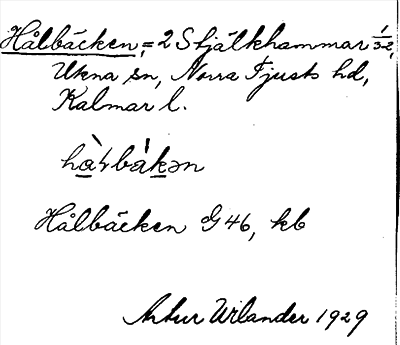 Hålbäcken, = 2 Stjälkhammar 1/32,
Ukna sn, Norra Tjusts hd,
Kalmar l.
Hålbäcken G 46, kb
Artur Wilander 1929